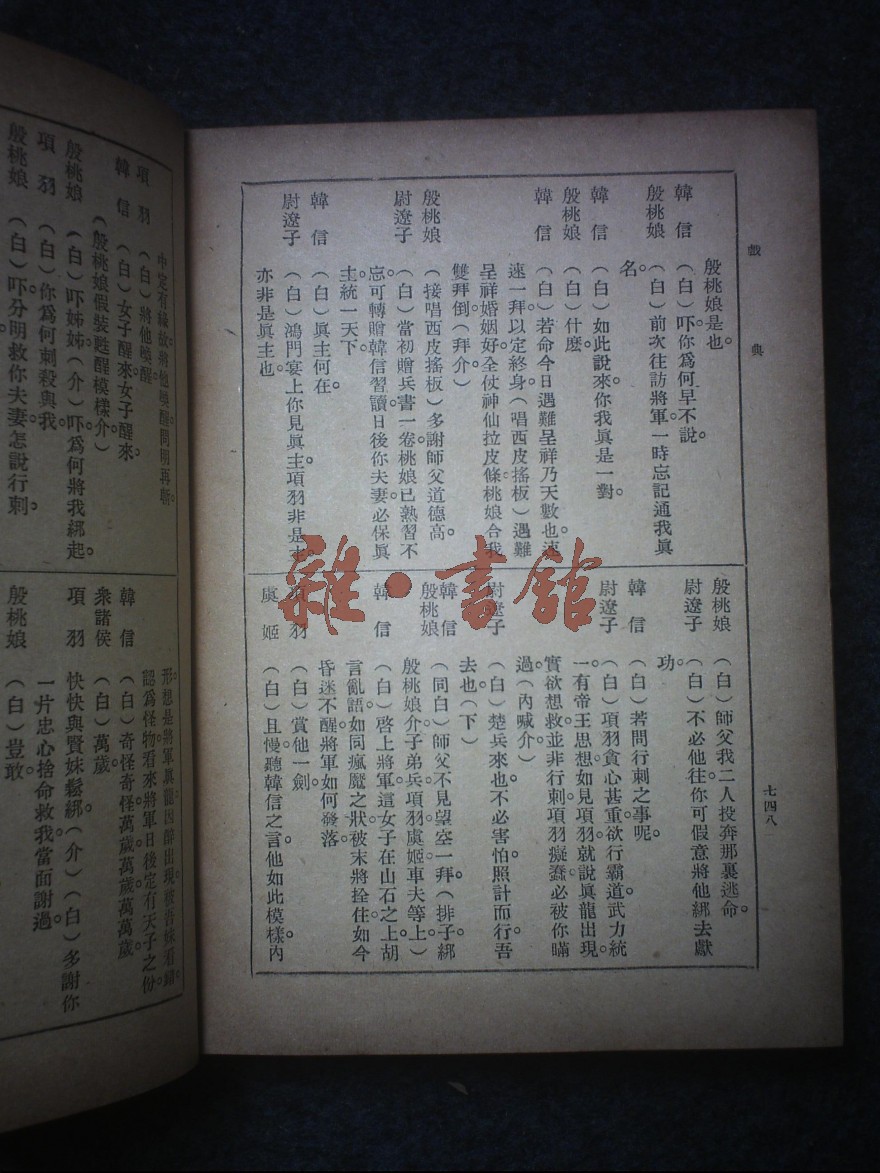 戲典
七四八
殷桃娘是也。
韓信（白）吓你爲何早不說。
殷桃娘（白）前次往訪將軍一時忘記通我眞
名。
韓信（白）如此說來你我眞是一對。
殷桃娘（白）什麽
韓信（白）若命今日遇難呈祥乃天數也速
速一拜以定終身（唱西皮搖板）遇難
呈祥婚姻好全仗神仙拉皮條桃娘合我
雙拜倒（拜介）
殷桃娘（接唱西皮搖板）多謝師父道德高。
尉遼子（白）當初贈兵書一卷桃娘已熟習不
忘可轉贈韓信習讀日後你夫妻必保眞
主統一天下。
韓信（白）眞主何在。
尉遼子（白）鴻門宴上你見眞主項羽非是主
亦非是眞主也。
殷桃娘（白）師父我二人投奔那裏逃命。
尉遼子（白）不必他往你可假意將他綁去獻
功。
韓信（白）若問行刺之事呢。
尉遼子（白）項羽貪心甚重欲行霸道武力統
一有帝王思想如見項羽就說眞龍出現。
實欲想救並非行刺項羽癡蠢必被你瞞
過。（內喊介）
尉遼子（白）楚兵來也不必害怕照計而行吾
去也（下）
韓信殷桃娘（同白）師父不見望空一拜（排子綁
殷桃娘介子弟兵項羽虞姬車夫等上）
韓信（白）啓上將軍這女子在山石之上胡
言亂語如同瘋魔之狀被末將拴住如今
昏迷不醒將軍如何發落
項羽（白）賞他一劍。
虞姬（白）且慢聽韓信之言他如此模樣內
中定有緣故將他喚醒問明再斬。
項羽（白）將他喚醒
韓信（白）女子醒來女子醒來。
（殷桃娘假裝甦醒模樣介）
殷桃娘（白）吓姊姊（介）吓爲何將我綁起。
項羽（白）你爲何刺殺與我。
殷桃娘（白）吓分明救你夫妻怎說行刺。
形想是將軍眞龍因醉出現被背妹看錯。
認爲怪物看來將軍日後定有天子之份。
韓信（白）奇怪奇怪萬歲萬歲萬萬歲
衆諸侯（白）萬歲
項羽快快與賢妹鬆綁（介）（白）多謝你
一片忠心捨命救我當面謝過。
殷桃娘（白）豈敢
雜·書館